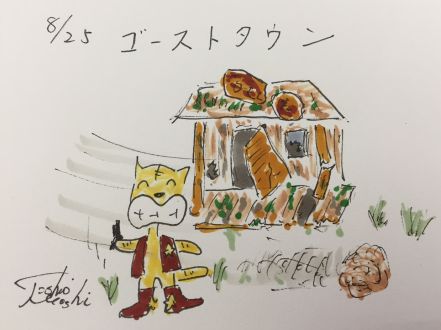 8/25 ゴーストタウン